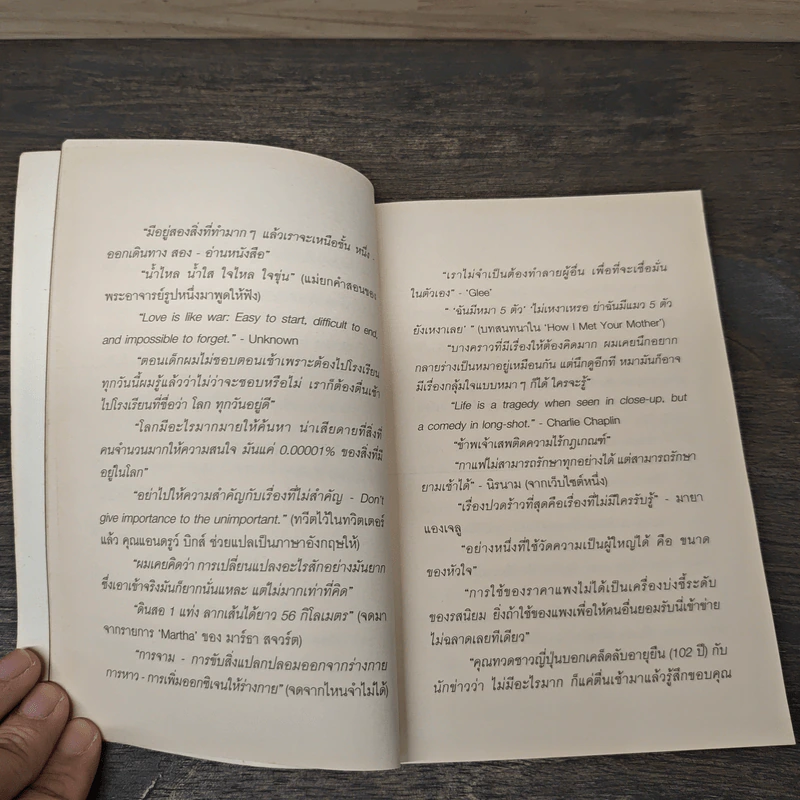 “มีอยู่สองสิ่งที่ทำมาก ๆ แล้วเราจะเหนือชั้น หนึ่ง -
ออกเดินทาง สอง - อ่านหนังสือ”
“น้ำไหล น้ำใส ใจไหล ใจขุ่น” (แม่ยกคำสอนของ
พระอาจารย์รูปหนึ่งมาพูดให้ฟัง)
“Love is like war: Easy to start, difficult to end,
and impossible to forget.” - Unknown
“ตอนเด็กผมไม่ชอบตอนเช้าเพราะต้องไปโรงเรียน
ทุกวันนี้ผมรู้แล้วว่าไม่ว่าจะชอบหรือไม่ เราก็ต้องตื่นเช้า
ไปโรงเรียนที่ชื่อว่า โลก ทุกวันอยู่ดี”
“โลกมีอะไรมากมายให้ค้นหา น่าเสียดายที่สิ่งที่
คนจำนวนมากให้ความสนใจ มันแค่ 0.00001% ของสิ่งที่มี
อยู่ในโลก”
“อย่าไปให้ความสำคัญกับเรื่องที่ไม่สำคัญ - Don't
give importance to the unimportant.” (ทวีตไว้ในทวิตเตอร์
แล้ว คุณแอนดรูว์ บิกส์ ช่วยแปลเป็นภาษาอังกฤษให้)
“ผมเคยคิดว่า การเปลี่ยนแปลงอะไรสักอย่างมันยาก
ซึ่งเอาเข้าจริงมันก็ยากนั่นแหละ แต่ไม่มากเท่าที่คิด”
“ดินสอ 1 แท่ง ลากเส้นได้ยาว 56 กิโลเมตร” (จดมา
จากรายการ ‘Martha’ ของ มาร์ธา สจวร์ต)
“การจาม - การขับสิ่งแปลกปลอมออกจากร่างกาย
การหาว - การเพิ่มออกซิเจนให้ร่างกาย” (จดจากไหนจำไม่ได้)
“เราไม่จำเป็นต้องทำลายผู้อื่น เพื่อที่จะเชื่อมั่น
ในตัวเอง” - ‘Glee’
“ ‘ฉันมีหมา 5 ตัว’ ‘ไม่เหงาเหรอ ย่าฉันมีแมว 5 ตัว
ยังเหงาเลย’ ” (บทสนทนาใน ‘How I Met Your Mother’)
“บางคราวที่มีเรื่องให้ต้องคิดมาก ผมเคยนึกอยาก
กลายร่างเป็นหมาอยู่เหมือนกัน แต่นึกดูอีกที หมามันก็อาจ
มีเรื่องกลุ้มใจแบบหมา ๆ ก็ได้ ใครจะรู้”
“Life is a tragedy when seen in close-up, but
a comedy in long-shot.” - Charlie Chaplin
“ข้าพเจ้าเสพติดความไร้กฎเกณฑ์”
“กาแฟไม่สามารถรักษาทุกอย่างได้ แต่สามารถรักษา
ยามเช้าได้” - นิรนาม (จากเว็บไซต์หนึ่ง)
“เรื่องปวดร้าวที่สุดคือเรื่องที่ไม่มีใครรับรู้” - มายา
แองเจลู
“อย่างหนึ่งที่ใช้วัดความเป็นผู้ใหญ่ได้ คือ ขนาด
ของหัวใจ”
“การใช้ของราคาแพงไม่ได้เป็นเครื่องบ่งชี้ระดับ
ของรสนิยม ยิ่งถ้าใช้ของแพงเพื่อให้คนอื่นยอมรับนี่เข้าข่าย
ไม่ฉลาดเลยทีเดียว”
“คุณทวดชาวญี่ปุ่นบอกเคล็ดลับอายุยืน (102 ปี) กับ
นักข่าวว่า ไม่มีอะไรมาก ก็แค่ตื่นเช้ามาแล้วรู้สึกขอบคุณ